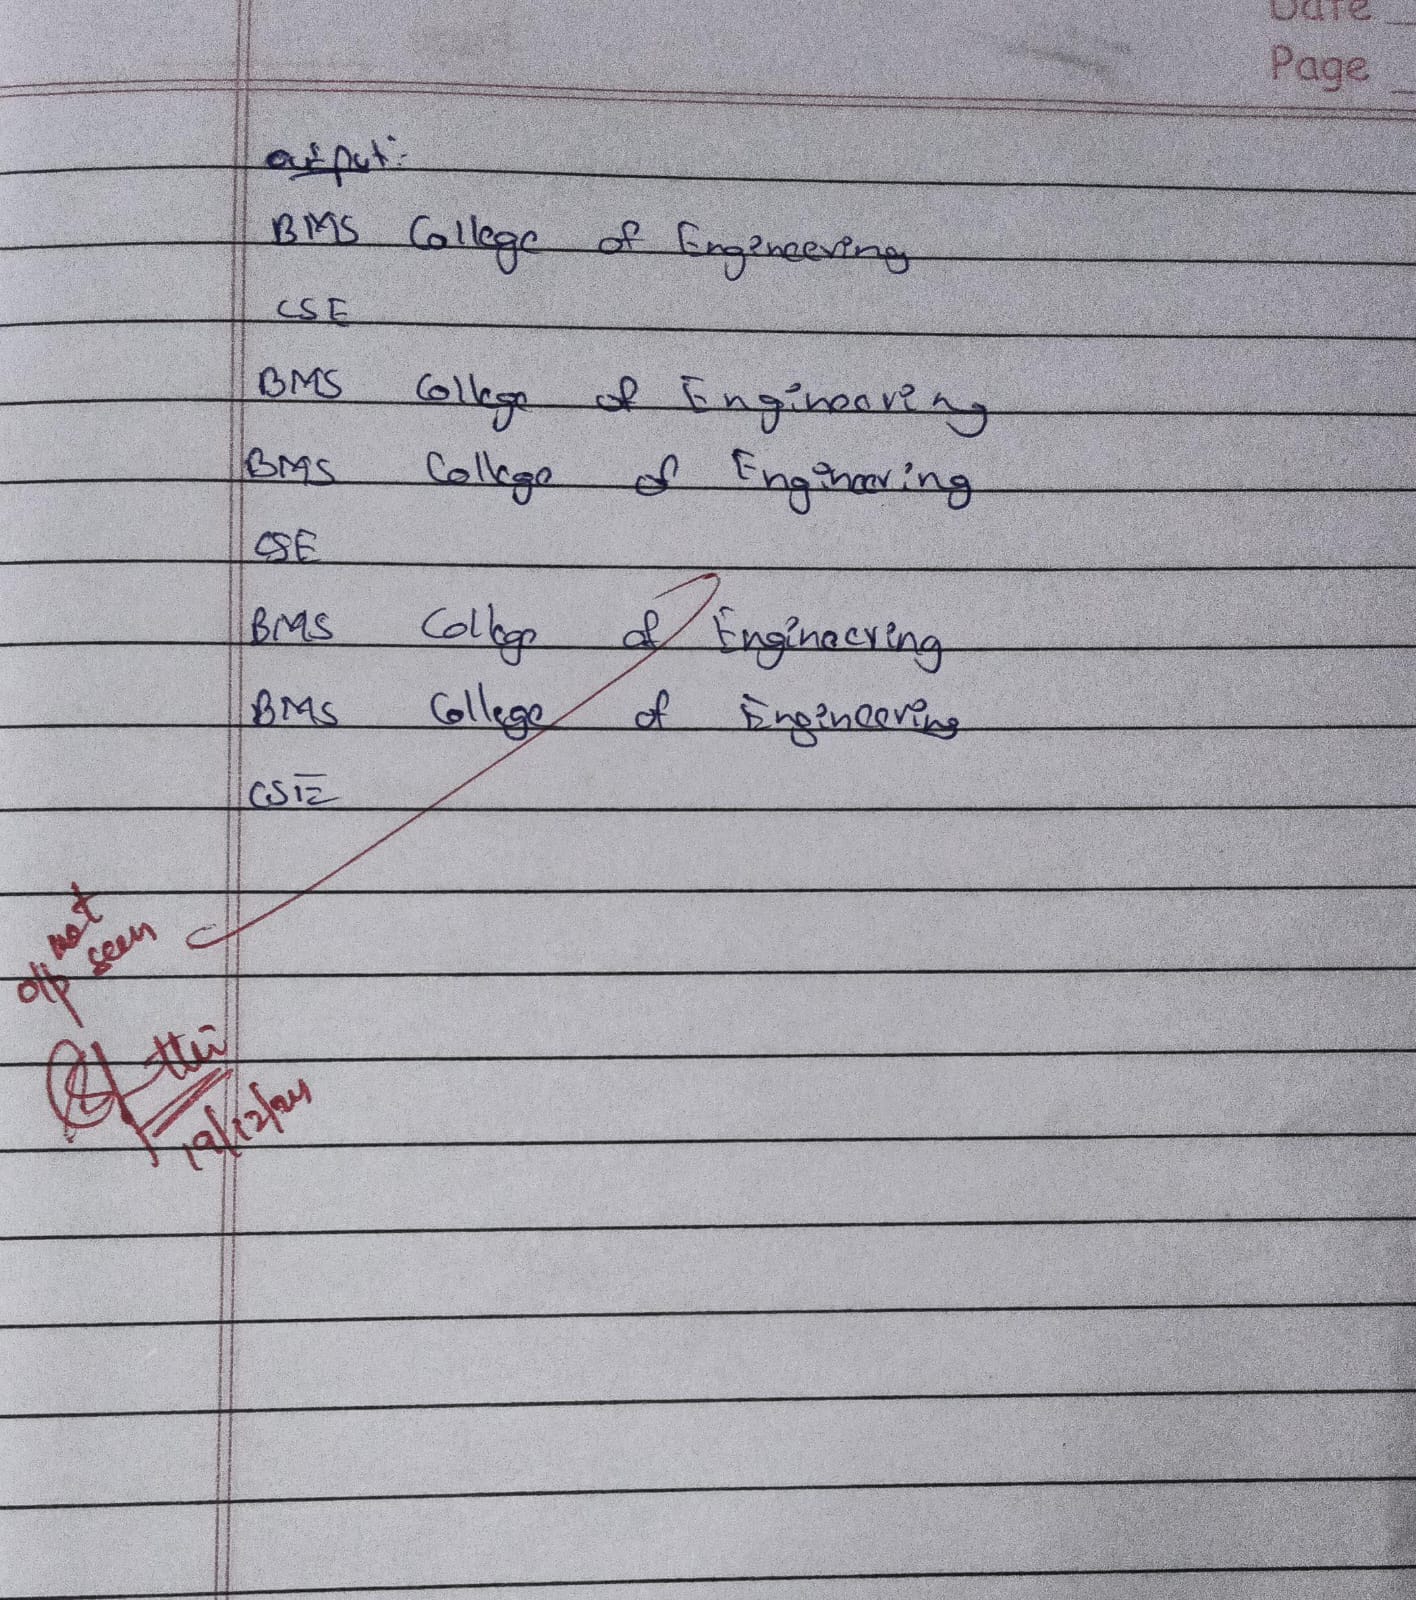 Date
Page
output:-
BMS College of Engineering
CSE
BMS College of Engineering
BMS College of Engineering
CSE
BMS College of Engineering
BMS College of Engineering
CSE
o/p not seen
19/12/24